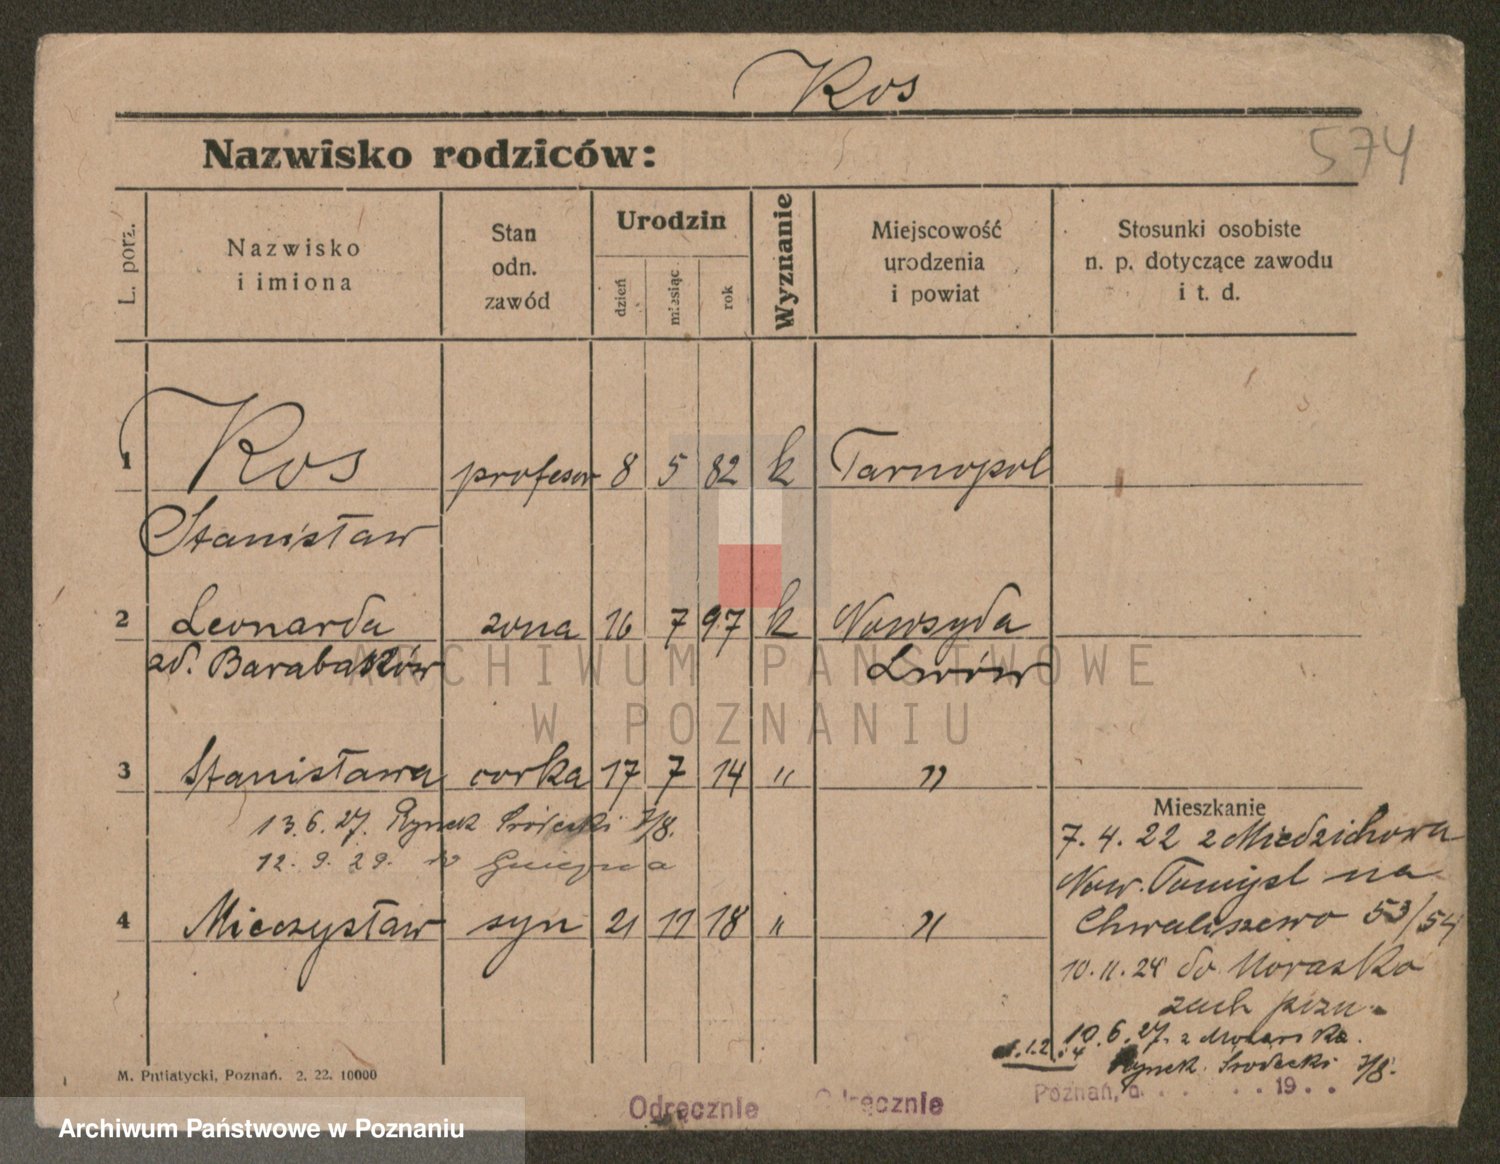 Kos
574
Nazwisko rodziców:
L. porz.
Nazwisko
i imiona
Stan
odn.
zawód
Urodzin
dzień
miesiąc
rok
Wyznanie
Miejscowość
urodzenia
i powiat
Stosunki osobiste
n. p. dotyczące zawodu
i t. d.
1 Kos profesor 8 5 82 k Tarnopol
Stanisław
2 Leonarda zona 16 7 97 k
zd. Barabaków Lwów
3 Stanisława corka 17 7 14 " "
13.6.27. Rynek Śródecki 7/8.
12.9.29. do Gniezna
4 Mieczysław syn 21 11 18 " "
Mieszkanie
7.4.22 z Miedzichowa
Now. Tomyśl na
Chwaliszewo 53/54
10.11.24 do Moraska
zach pozn.
10.6.27. z Moraska.
Rynek Środecki 7/8.
M. Pntiatycki, Poznań. 2. 22. 10000
Odręcznie
Odręcznie
Poznań, d. . . . . 19 . .
ARCHIWUM PAŃSTWOWE
W POZNANIU
Archiwum Państwowe w Poznaniu